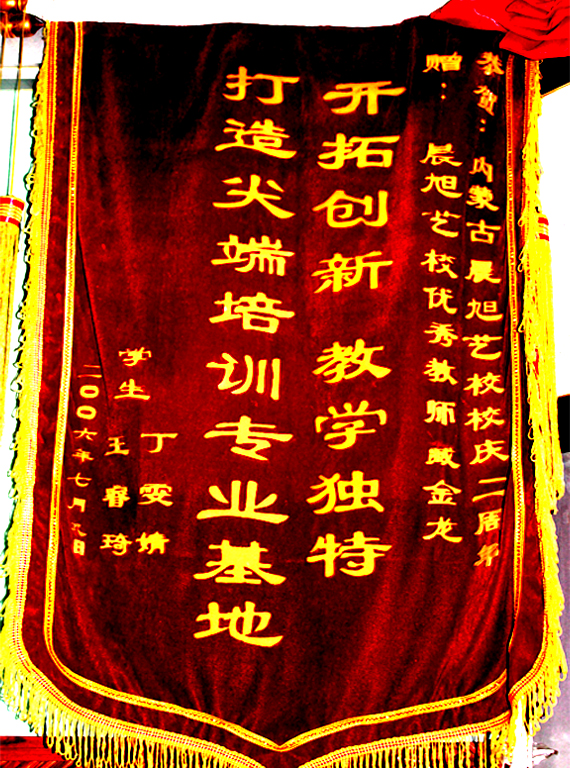 恭贺：内蒙古晨旭艺校校庆二周年
赠：晨旭艺校优秀教师 金龙
开拓创新 教学独特
打造尖端培训专业基地
学生
丁雯婧
王睿琦
二00六年七月九日